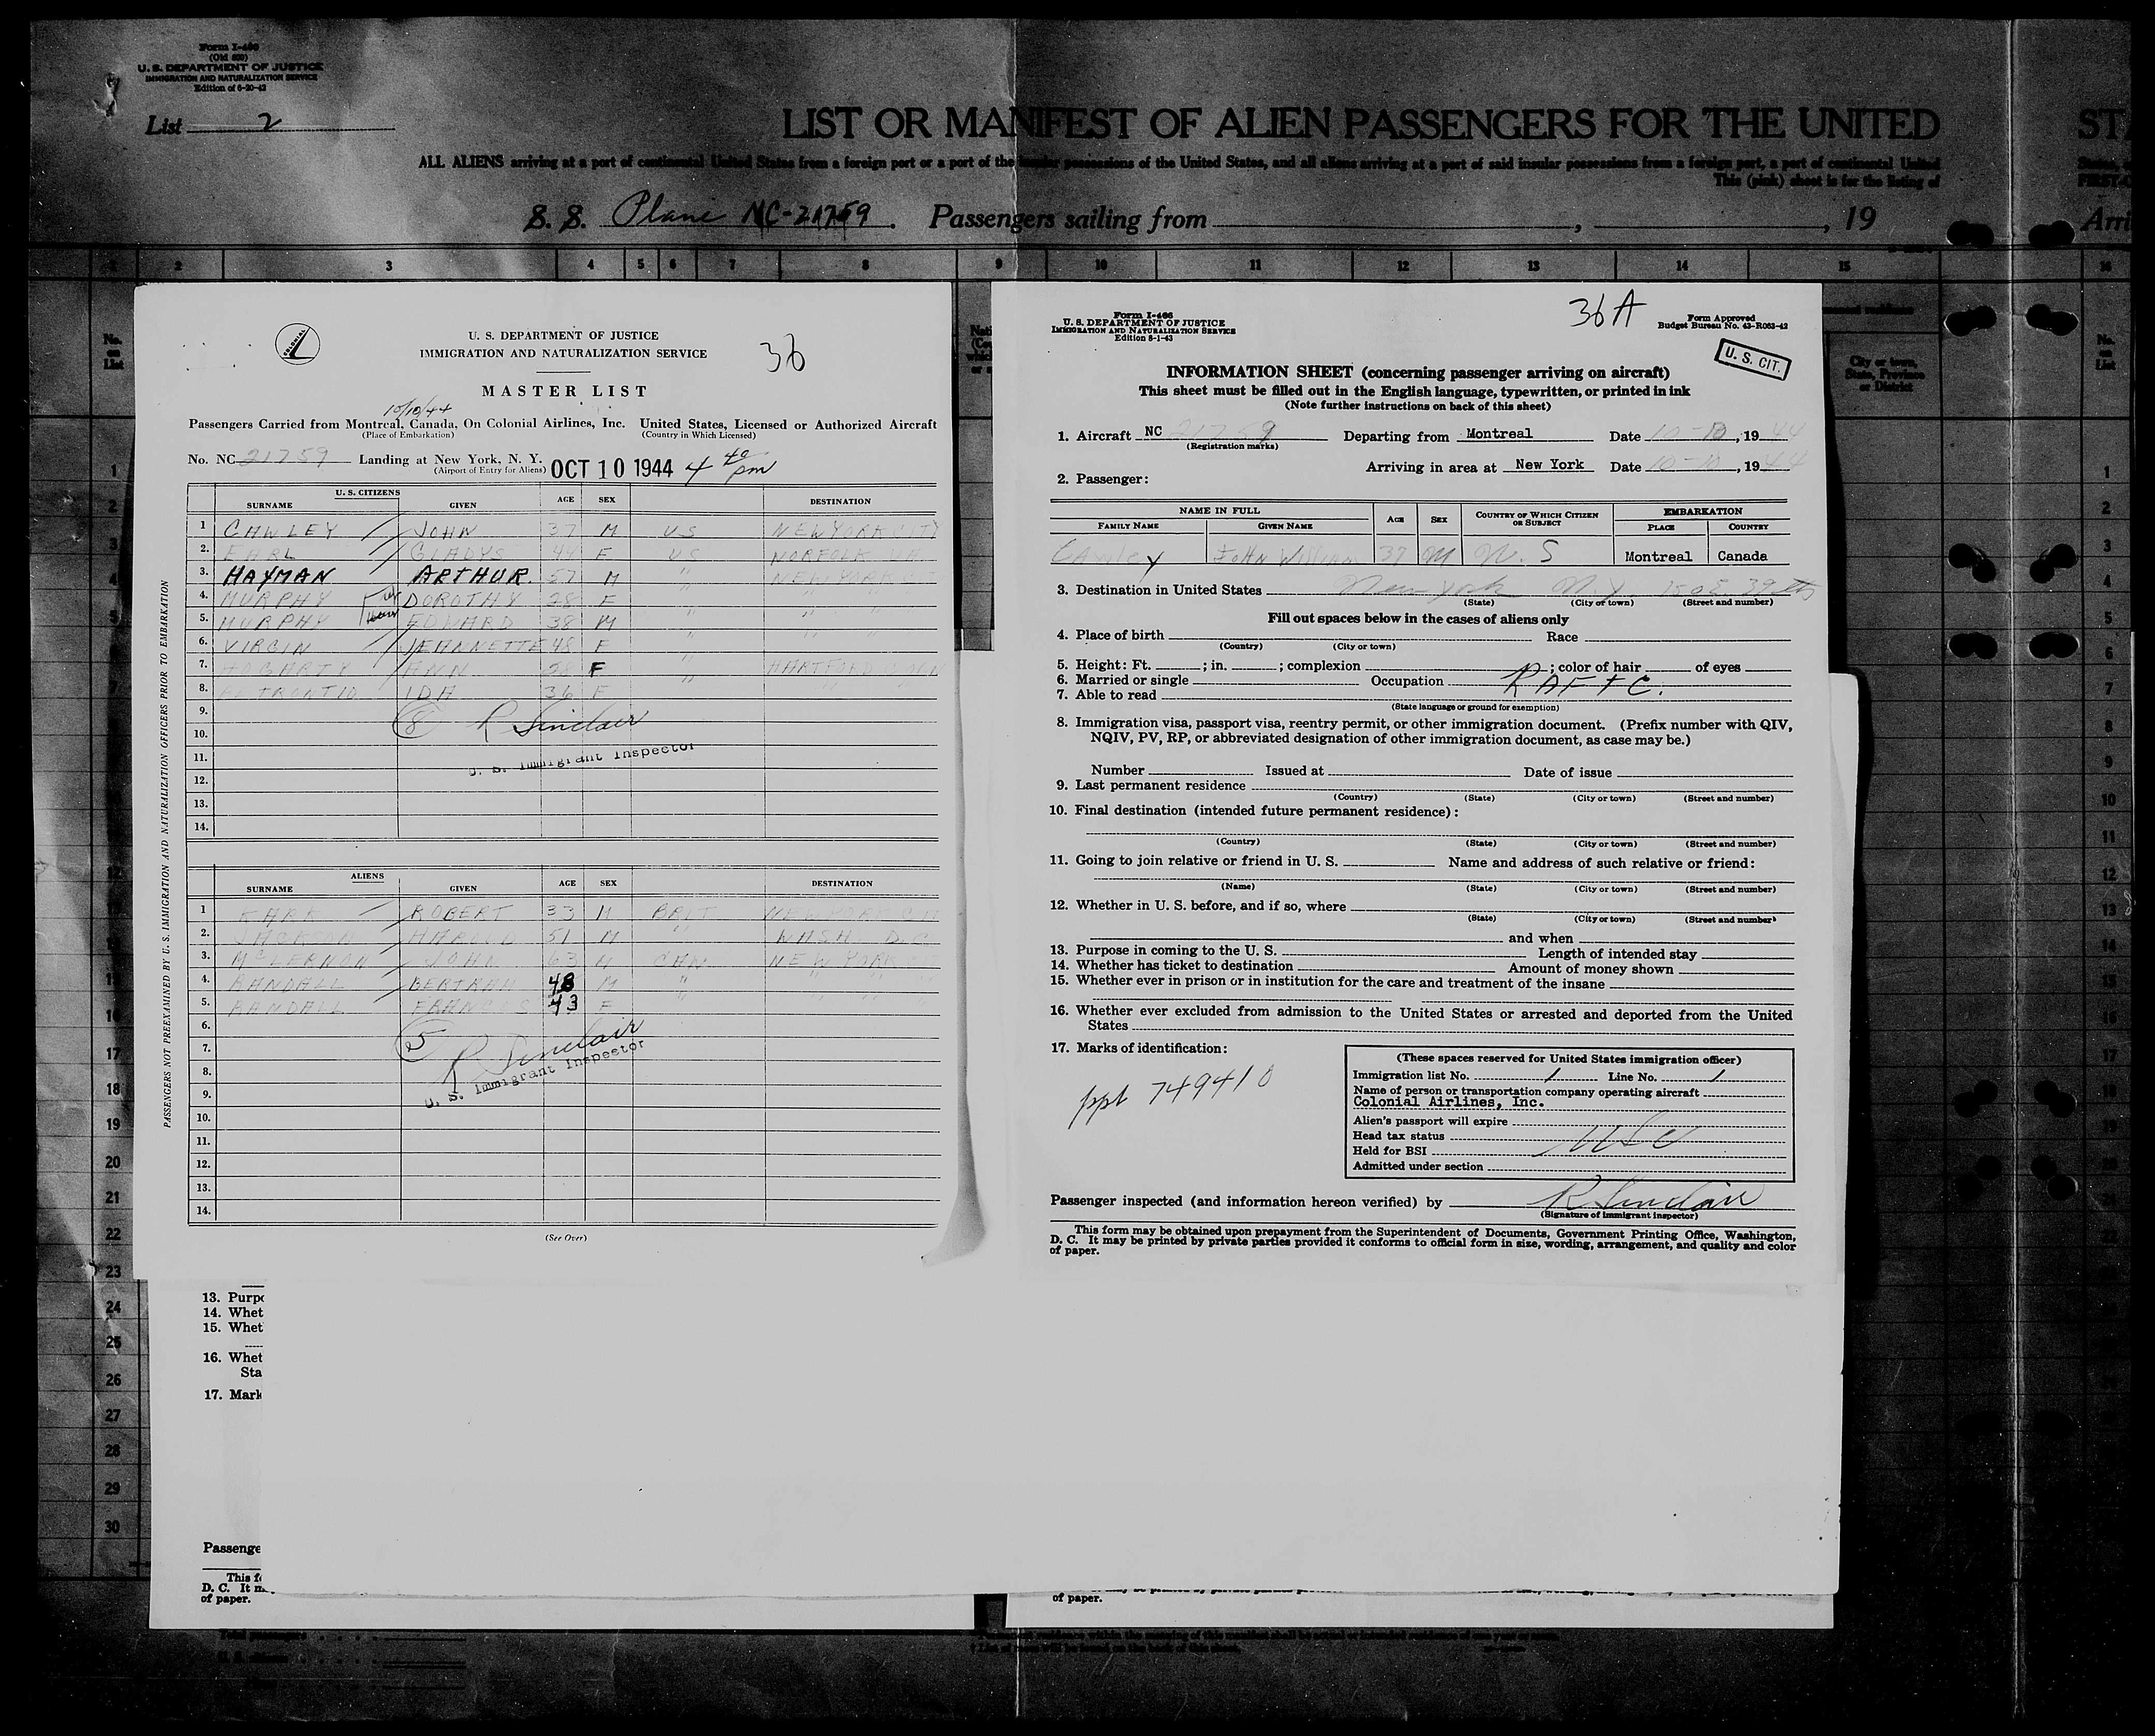 Form I-466
(Old 500)
U. S. DEPARTMENT OF JUSTICE
IMMIGRATION AND NATURALIZATION SERVICE
Edition of 6-20-43
List 2
LIST OR MANIFEST OF ALIEN PASSENGERS FOR THE UNITED STA
ALL ALIENS arriving at a port of continental United States from a foreign port or a port of the insular possessions of the United States, and all aliens arriving at a port of said insular possessions from a foreign port, a port of continental United
This (pink) sheet is for the listing of
S. S. Plane NC-21759 Passengers sailing from , 19 Arri
1 2 3 4 5 6 7 8 9 10 11 12 13 14 15 16
COLONIAL
U. S. DEPARTMENT OF JUSTICE
IMMIGRATION AND NATURALIZATION SERVICE
36
MASTER LIST
10/10/44
Passengers Carried from Montreal, Canada, On Colonial Airlines, Inc. United States, Licensed or Authorized Aircraft
(Place of Embarkation) (Country in Which Licensed)
No. NC 21759 Landing at New York, N. Y. OCT 10 1944 4 40 pm
(Airport of Entry for Aliens)
U. S. CITIZENS
SURNAME GIVEN AGE SEX DESTINATION
1 CAWLEY JOHN 37 M US NEW YORK CITY
2. EARL GLADYS 44 F US NORFOLK VA
3. HAYMAN ARTHUR 57 M " NEW YORK
4. MURPHY DOROTHY 28 F " " "
5. MURPHY EDWARD 38 M " " "
6. VIRGIN JEANNETTE 48 F "
7. HOGARTY ANN F " HARTFORD CONN
8. IDA 36 F
9.
10.
(8) R Sinclair
11.
U. S. Immigrant Inspector
12.
13.
14.
ALIENS
SURNAME GIVEN AGE SEX DESTINATION
1 ROBERT 33 M BRIT NEW YORK
2. JACKSON HAROLD 51 M " WASH D.C.
3. McLERNON JOHN 63 M CAN NEW YORK
4. RANDALL BERTRAM 48 M " " "
5. RANDALL FRANCES 43 F
6.
7.
(5) R Sinclair
8.
U. S. Immigrant Inspector
9.
10.
11.
12.
13.
14.
(See Over)
PASSENGERS NOT PREEXAMINED BY U. S. IMMIGRATION AND NATURALIZATION OFFICERS PRIOR TO EMBARKATION
36A
Form I-466
U. S. DEPARTMENT OF JUSTICE
IMMIGRATION AND NATURALIZATION SERVICE
Edition 8-1-43
Form Approved
Budget Bureau No. 43-R063-42
U. S. CIT.
INFORMATION SHEET (concerning passenger arriving on aircraft)
This sheet must be filled out in the English language, typewritten, or printed in ink
(Note further instructions on back of this sheet)
1. Aircraft NC 21759 Departing from Montreal Date 10-10, 1944
(Registration marks)
Arriving in area at New York Date 10-10, 1944
2. Passenger:
NAME IN FULL AGE SEX COUNTRY OF WHICH CITIZEN OR SUBJECT EMBARKATION
FAMILY NAME GIVEN NAME PLACE COUNTRY
Cawley John William 37 M U.S Montreal Canada
3. Destination in United States New York N.Y. 150 E. 39th
(State) (City or town) (Street and number)
Fill out spaces below in the cases of aliens only
4. Place of birth Race
(Country) (City or town)
5. Height: Ft. ; in. ; complexion ; color of hair of eyes
6. Married or single Occupation RAFTC.
7. Able to read
(State language or ground for exemption)
8. Immigration visa, passport visa, reentry permit, or other immigration document. (Prefix number with QIV,
NQIV, PV, RP, or abbreviated designation of other immigration document, as case may be.)
Number Issued at Date of issue
9. Last permanent residence
(Country) (State) (City or town) (Street and number)
10. Final destination (intended future permanent residence):
(Country) (State) (City or town) (Street and number)
11. Going to join relative or friend in U. S. Name and address of such relative or friend:
(Name) (State) (City or town) (Street and number)
12. Whether in U. S. before, and if so, where
(State) (City or town) (Street and number)
and when
13. Purpose in coming to the U. S. Length of intended stay
14. Whether has ticket to destination Amount of money shown
15. Whether ever in prison or in institution for the care and treatment of the insane
16. Whether ever excluded from admission to the United States or arrested and deported from the United
States
17. Marks of identification:
ppt 749410
(These spaces reserved for United States immigration officer)
Immigration list No. 1 Line No. 1
Name of person or transportation company operating aircraft
Colonial Airlines, Inc.
Alien's passport will expire
Head tax status USC
Held for BSI
Admitted under section
Passenger inspected (and information hereon verified) by R Sinclair
(Signature of immigrant inspector)
This form may be obtained upon prepayment from the Superintendent of Documents, Government Printing Office, Washington,
D. C. It may be printed by private parties provided it conforms to official form in size, wording, arrangement, and quality and color
of paper.
13. Purpo
14. Whet
15. Whet
16. Whet
Sta
17. Mark
Passenge
This f
D. C. It m
of paper.
of paper.